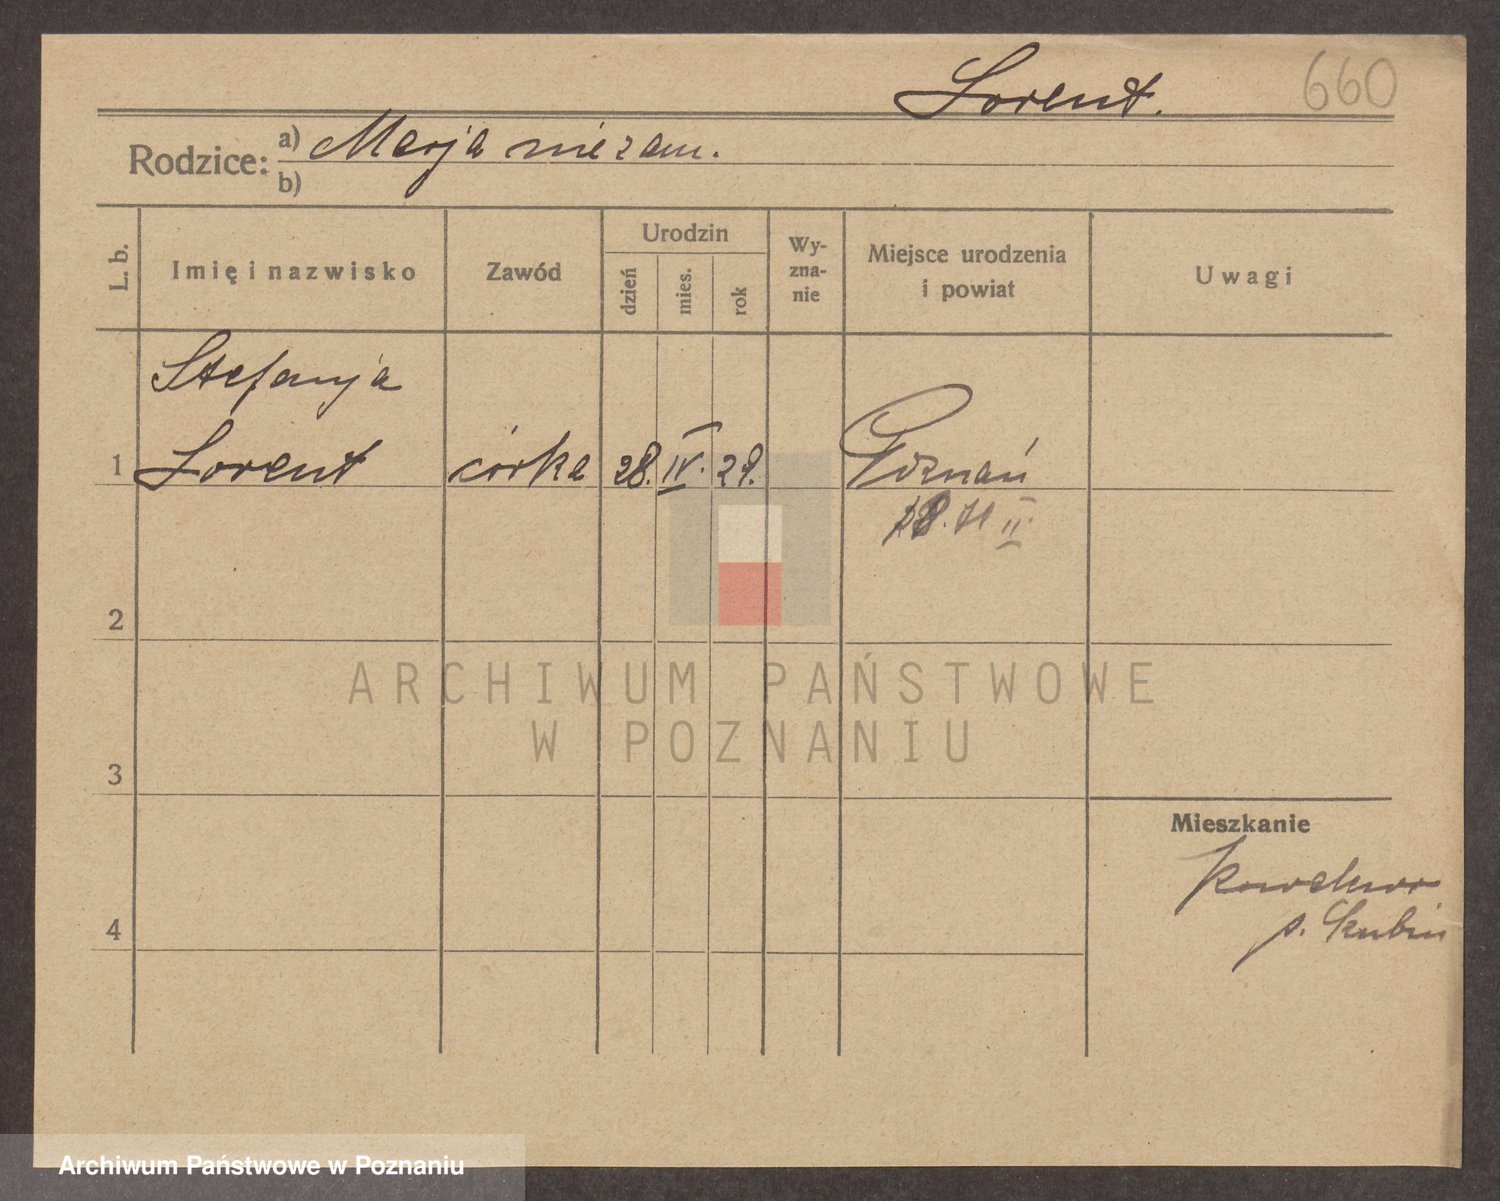 Lorent. 660
Rodzice: a) Marja niezam.
b)
L. b. Imię i nazwisko Zawód Urodzin dzień mies. rok Wyznanie Miejsce urodzenia i powiat Uwagi
Stefanja
1 Lorent córka 28. IV. 29. Poznań
2
3
Mieszkanie
Kowalewo
p. Szubin
4
ARCHIWUM PAŃSTWOWE
W POZNANIU
Archiwum Państwowe w Poznaniu